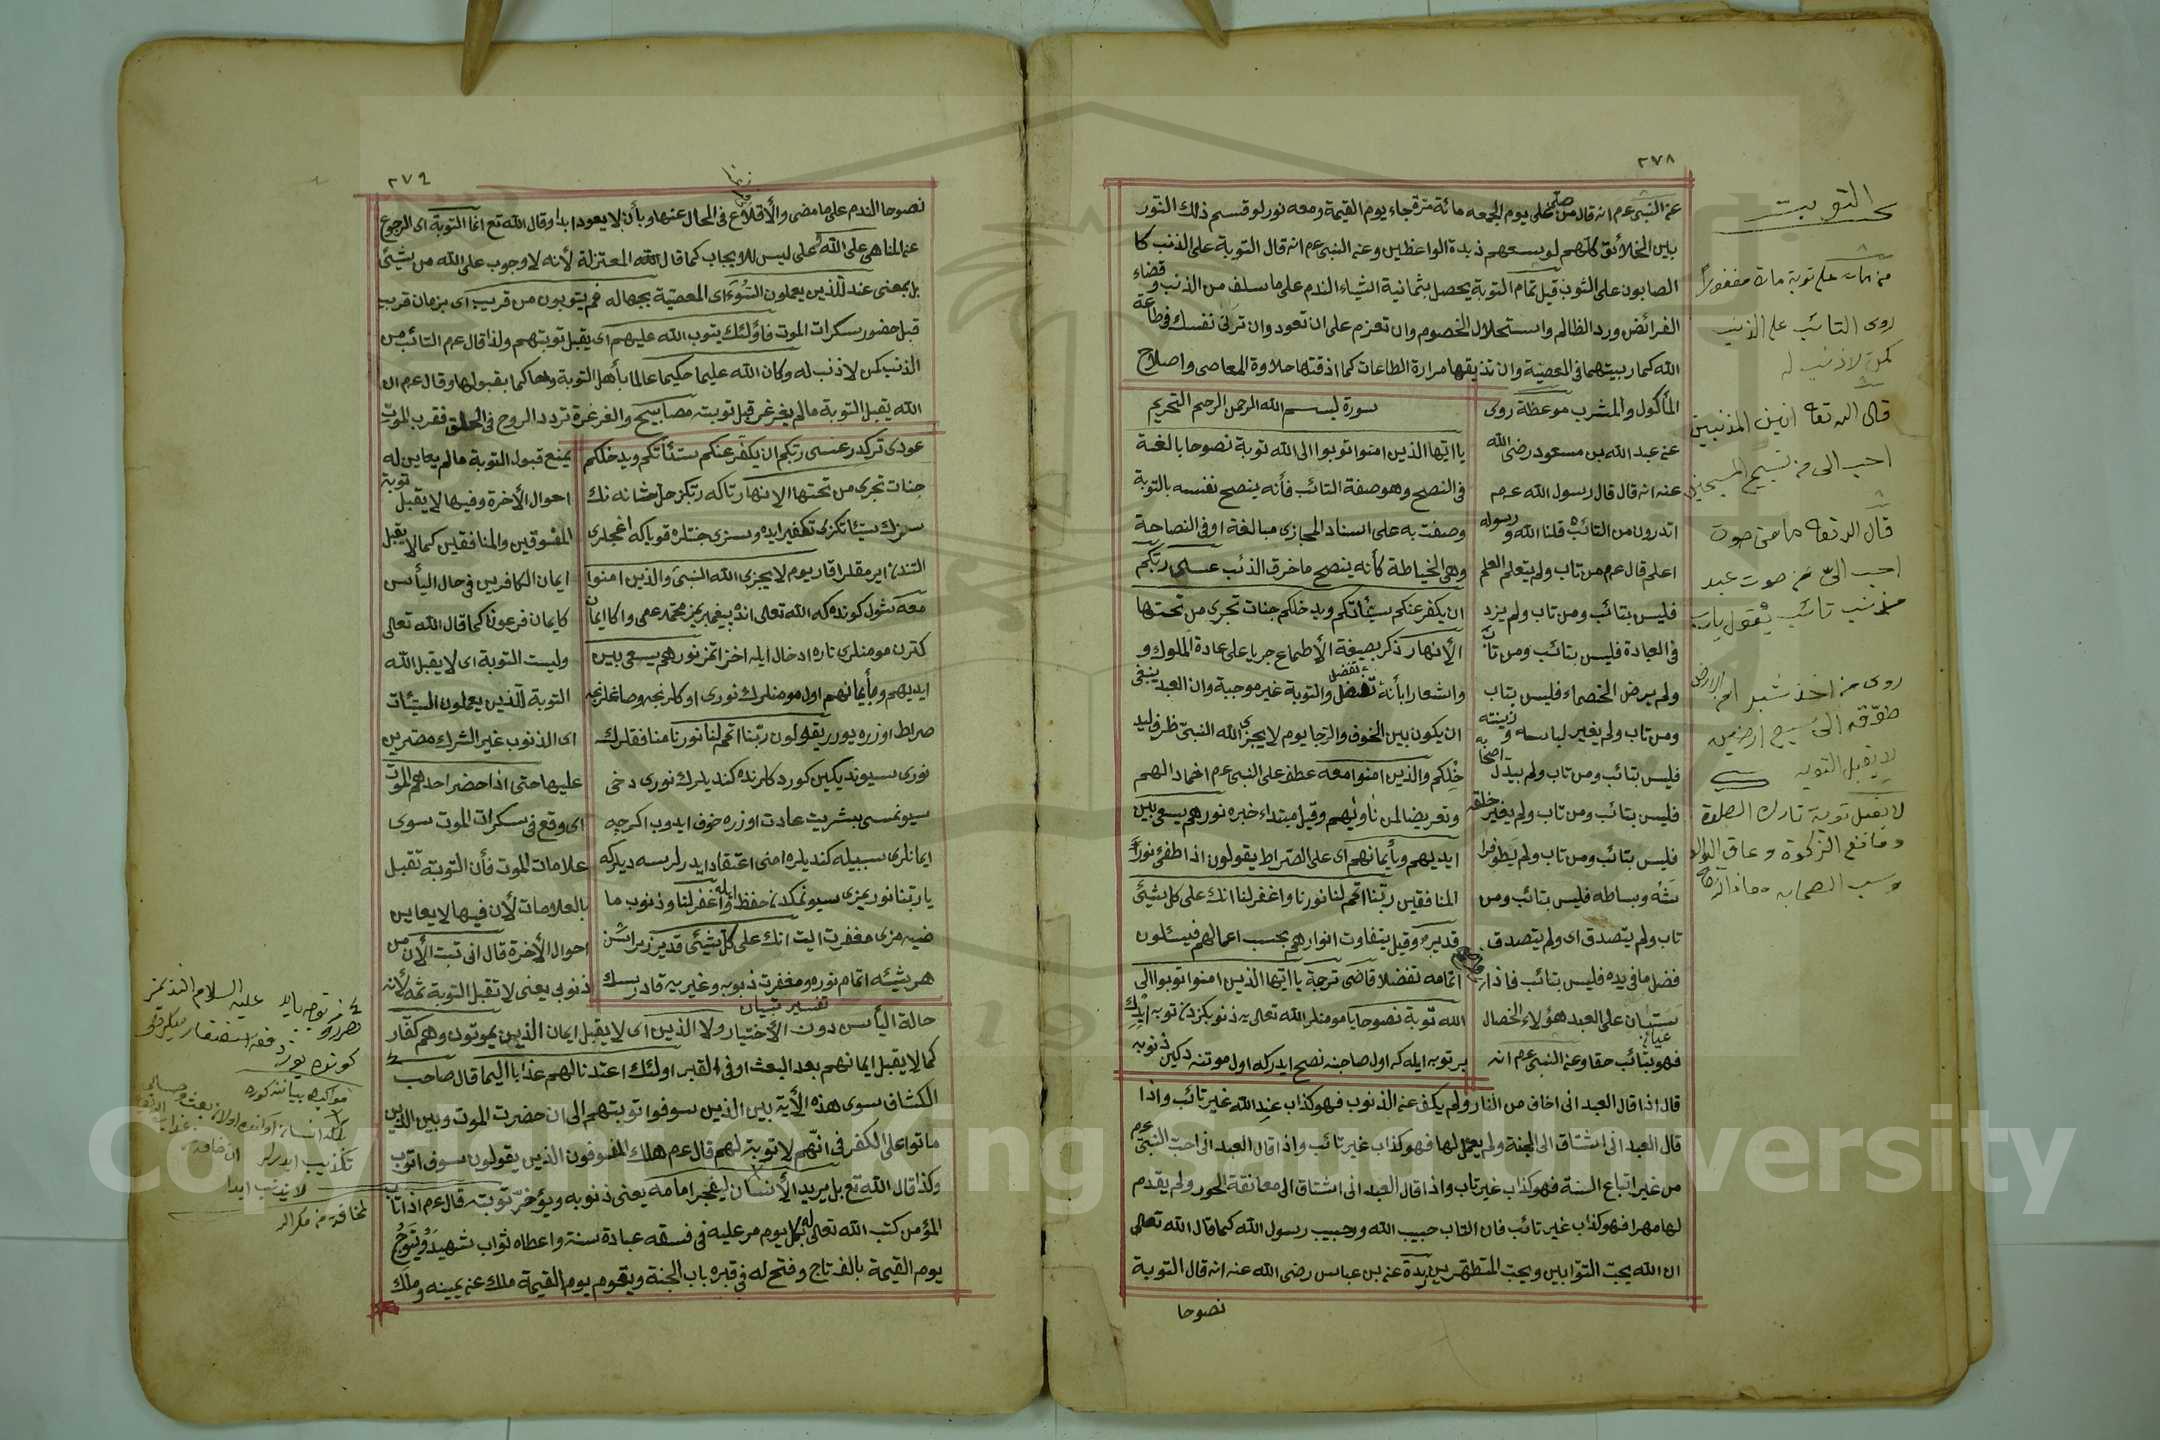 ٢٧٨
عن النبى عم انه قال من صلى على يوم الجمعه مائة مرة جاء يوم القيمة ومعه نور لو قسم ذلك النور
بين الخلائق كلهم لوسعهم زبدة الواعظين وعن النبى عم انه قال التوبة على الذنب كا
الصابون على الثوب قيل تمام التوبة يحصل بثمانية اشياء الندم على ما سلف من الذنب وقضاء
الفرائض ورد الظالم واستحلال الخصوم وان تعزم على ان تعود وان تربى نفسك فى طاعة
الله كما ربيتهما فى المعصية وان تذيقها مرارة الطاعات كما اذقتها حلاوة المعاصى واصلاح
المأكول والمشرب موعظة روى
عن عبد الله بن مسعود رضى الله
عنه انه قال قال رسول الله عم
اتدرون من التائب قلنا الله ورسوله
اعلم قال عم من تاب ولم يتعلم العلم
فليس بتائب ومن تاب ولم يزد
فى العبادة فليس بتائب ومن تاب
ولم يرض الخصماء فليس بتاب
ومن تاب ولم يغير لباسه وزينته
فليس بتائب ومن تاب ولم يبدل اصحابه
فليس بتائب ومن تاب ولم يغير خلقه
فليس بتائب ومن تاب ولم يطو فرا
شه وبساطه فليس بتائب ومن
تاب ولم يتصدق اى ولم يتصدق
فضل ما فى يده فليس بتائب فاذا
يستبان على العبد هؤلاء الخصال
فهو بتائب حقا وعن النبى عم انه
سورة بسم الله الرحمن الرحيم التحريم
يا ايها الذين امنوا توبوا الى الله توبة نصوحا بالغة
فى النصح وهو صفة التائب فأنه ينصح نفسه بالتوبة
وصفت به على اسناد المجازى مبالغة او فى النصاحة
وهى الخياطة كأنه ينصح ما خرق الذنب عسى ربكم
ان يكفر عنكم سيئاتكم ويدخلكم جنات تجرى من تحتها
الانهار ذكر بصيغة الأطماع جريا على عادة الملوك و
واشعارا بأنه تفضل والتوبة غير موجبة وان العبد ينبغى
ان يكون بين الخوف والرجا يوم لا يخزى الله النبى ظرف ليد
خلكم والذين امنوا معه عطف على النبى عم اخمادا لهم
وتعريضا لمن ناواهم وقيل مبتداء خبره نورهم يسعى بين
ايديهم وبأيمانهم اى على الصراط يقولون اذا اطفئ نور
المنافقين ربنا اتمم لنا نورنا واغفر لنا انك على كل شيئ
قدير وقيل يتفاوت انوارهم بحسب اعمالهم فيسئلون
اتمامه تفضلا قاضى ترجمة يا ايها الذين امنوا توبوا الى
الله توبة نصوحا يا مومنلر الله تعالى يه ذنوبكزدن توبه ايدك
بر توبه ايله كه اول صاحبنه نصح ايدركه اول موتنه دكين ذنوبه
قال اذا قال العبد انى اخاف من النار ولم يكف عن الذنوب فهو كذاب عند الله غير تائب واذا
قال العبد انى اشتاق الى الجنة ولم يعمل لها فهو كذاب غير تائب واذا قال العبد انى احب النبى عم
من غير اتباع السنة فهو كذاب غير تاب واذا قال العبد انى اشتاق الى معانقة الحور ولم يقدم
لها مهرا فهو كذاب غير تائب فان التاب حبيب الله وحبيب رسول الله كما قال الله تعالى
ان الله يحب التوابين ويحب المتطهرين زبدة عن بن عباس رضى الله عنه انه قال التوبة
نصوحا
التوبت
من مات على توبة مات مغفورا
روى التائب على الذنب
كمن لا ذنب له
قال الله تعا انين المذنبين
احب الى من تسبيح المسبحين
قال الله تعا ما من صوت
احب الى من صوت عبد
مذنب تائب يقول يارب
روى من اخذ شبرا من الارض
طوقه الى سبع ارضين
لا يقبل التوبه
لا يقبل توبة تارك الصلوة
ومانع الزكوة وعاق الوالد
وسب الصحابه
٢٧٩
نصوحا الندم على ما مضى والأقلاع فى الحال عنها وبأن لا يعود ابدا وقال الله تع انما التوبة اى الرجوع
عن المناهى على الله وعلى ليس للايجاب كما قال المعتزلة لأنه لا وجوب على الله من شيئ
بل بمعنى عند للذين يعملون السوء اى المعصية بجهالة ثم يتوبون من قريب اى بزمان قريب
قبل حضور سكرات الموت فاولئك يتوب الله عليهم اى يقبل توبتهم ولذا قال عم التائب من
الذنب كمن لا ذنب له وكان الله عليما حكيما عالما بأهل التوبة وحاكما بقبولها وقال عم ان
الله يقبل التوبة ما لم يغرغر قبل توبته مصابيح والغرغرة تردد الروح فى الحلق فقرب الموت
عودى تركدر عسى ربكم ان يكفر عنكم سئاتكم ويدخلكم
جنات تجرى من تحتها الانهار تاكه ربكز جل شانه نك
سزك سيئاتكزى تكفير ايده وسزى جنتلره قويا كه اغجلرى
التندن ايرمقلر اقار يوم لا يخزى الله النبى والذين امنوا
معه شول كونده كه الله تعالى انده پيغمبريمز محمد عمى واكا ايمان
كترن مومنلرى ناره ادخال ايله اخز اتمز نورهم يسعى بين
ايديهم وبأيمانهم اول مومنلرك نورى اوكلرنجه وصاغلرنجه
صراط اوزره يورر يقولون ربنا اتمم لنا نورنا منافقلرك
نورى سيوندكين كوردكلرنده كنديلرك نورى دخى
سيونمسى بشريت عادت اوزره خوف ايدوب اكرچه
ايمانلرى سببيله كنديلره امنى اعتقاد ايدرلرسه ديلركه
يا ربنا نوريمزى سيونمكدن حفظ ايله واغفر لنا وذنوب ما
ضيه مزى مغفرت ايت انك على كل شيئ قدير زيرا سن
هر شيئه اتمام نوره ومغفرت ذنوبه وغيريه قادرسك
تفسير تبيان
يمنع قبول التوبة ما لم يعاين له
احوال الأخرة وفيها لا يقبل توبة
الفسوقين والمنافقين كما لا يقبل
ايمان الكافرين فى حال اليأس
كايمان فرعون كما قال الله تعالى
وليست التوبة اى لا يقبل الله
التوبة للذين يعملون السيئات
اى الذنوب غير الشرك مصرين
عليها حتى اذا حضر احدهم الموت
اى وقع فى سكرات الموت سوى
علامات الموت فأن التوبة تقبل
بالعلامات لأن فيها لا يعاين
احوال الأخرة قال انى تبت الأن من
ذنوبى يعنى لا تقبل التوبة ثمه لأنه
حالة اليأس دون الأختيار ولا الذين اى لا يقبل ايمان الذين يموتون وهم كفار
كما لا يقبل ايمانهم بعد البعث او فى القبر اولئك اعتدنا لهم عذابا اليما قال صاحب
الكشاف سوى هذه الأية بين الذين سوفوا توبتهم الى ان حضرت الموت وبين الذين
ماتوا على الكفر فى انهم لا توبة لهم قال عم هلك المسوفون الذين يقولون سوف اتوب
وكذا قال الله تع بل يريد الأنسان ليفجر امامه يعنى ذنوبه ويؤخر توبته قال عم اذا تاب
المؤمن كتب الله تعالى له بكل يوم مر عليه فى فسقه عبادة سنة واعطاه ثواب شهيد ويتوج
يوم القيمة بالف تاج وفتح له فى قبره باب الجنة ويقوم يوم القيمة ملك عن يمينه وملك
Copyright © King Saud University